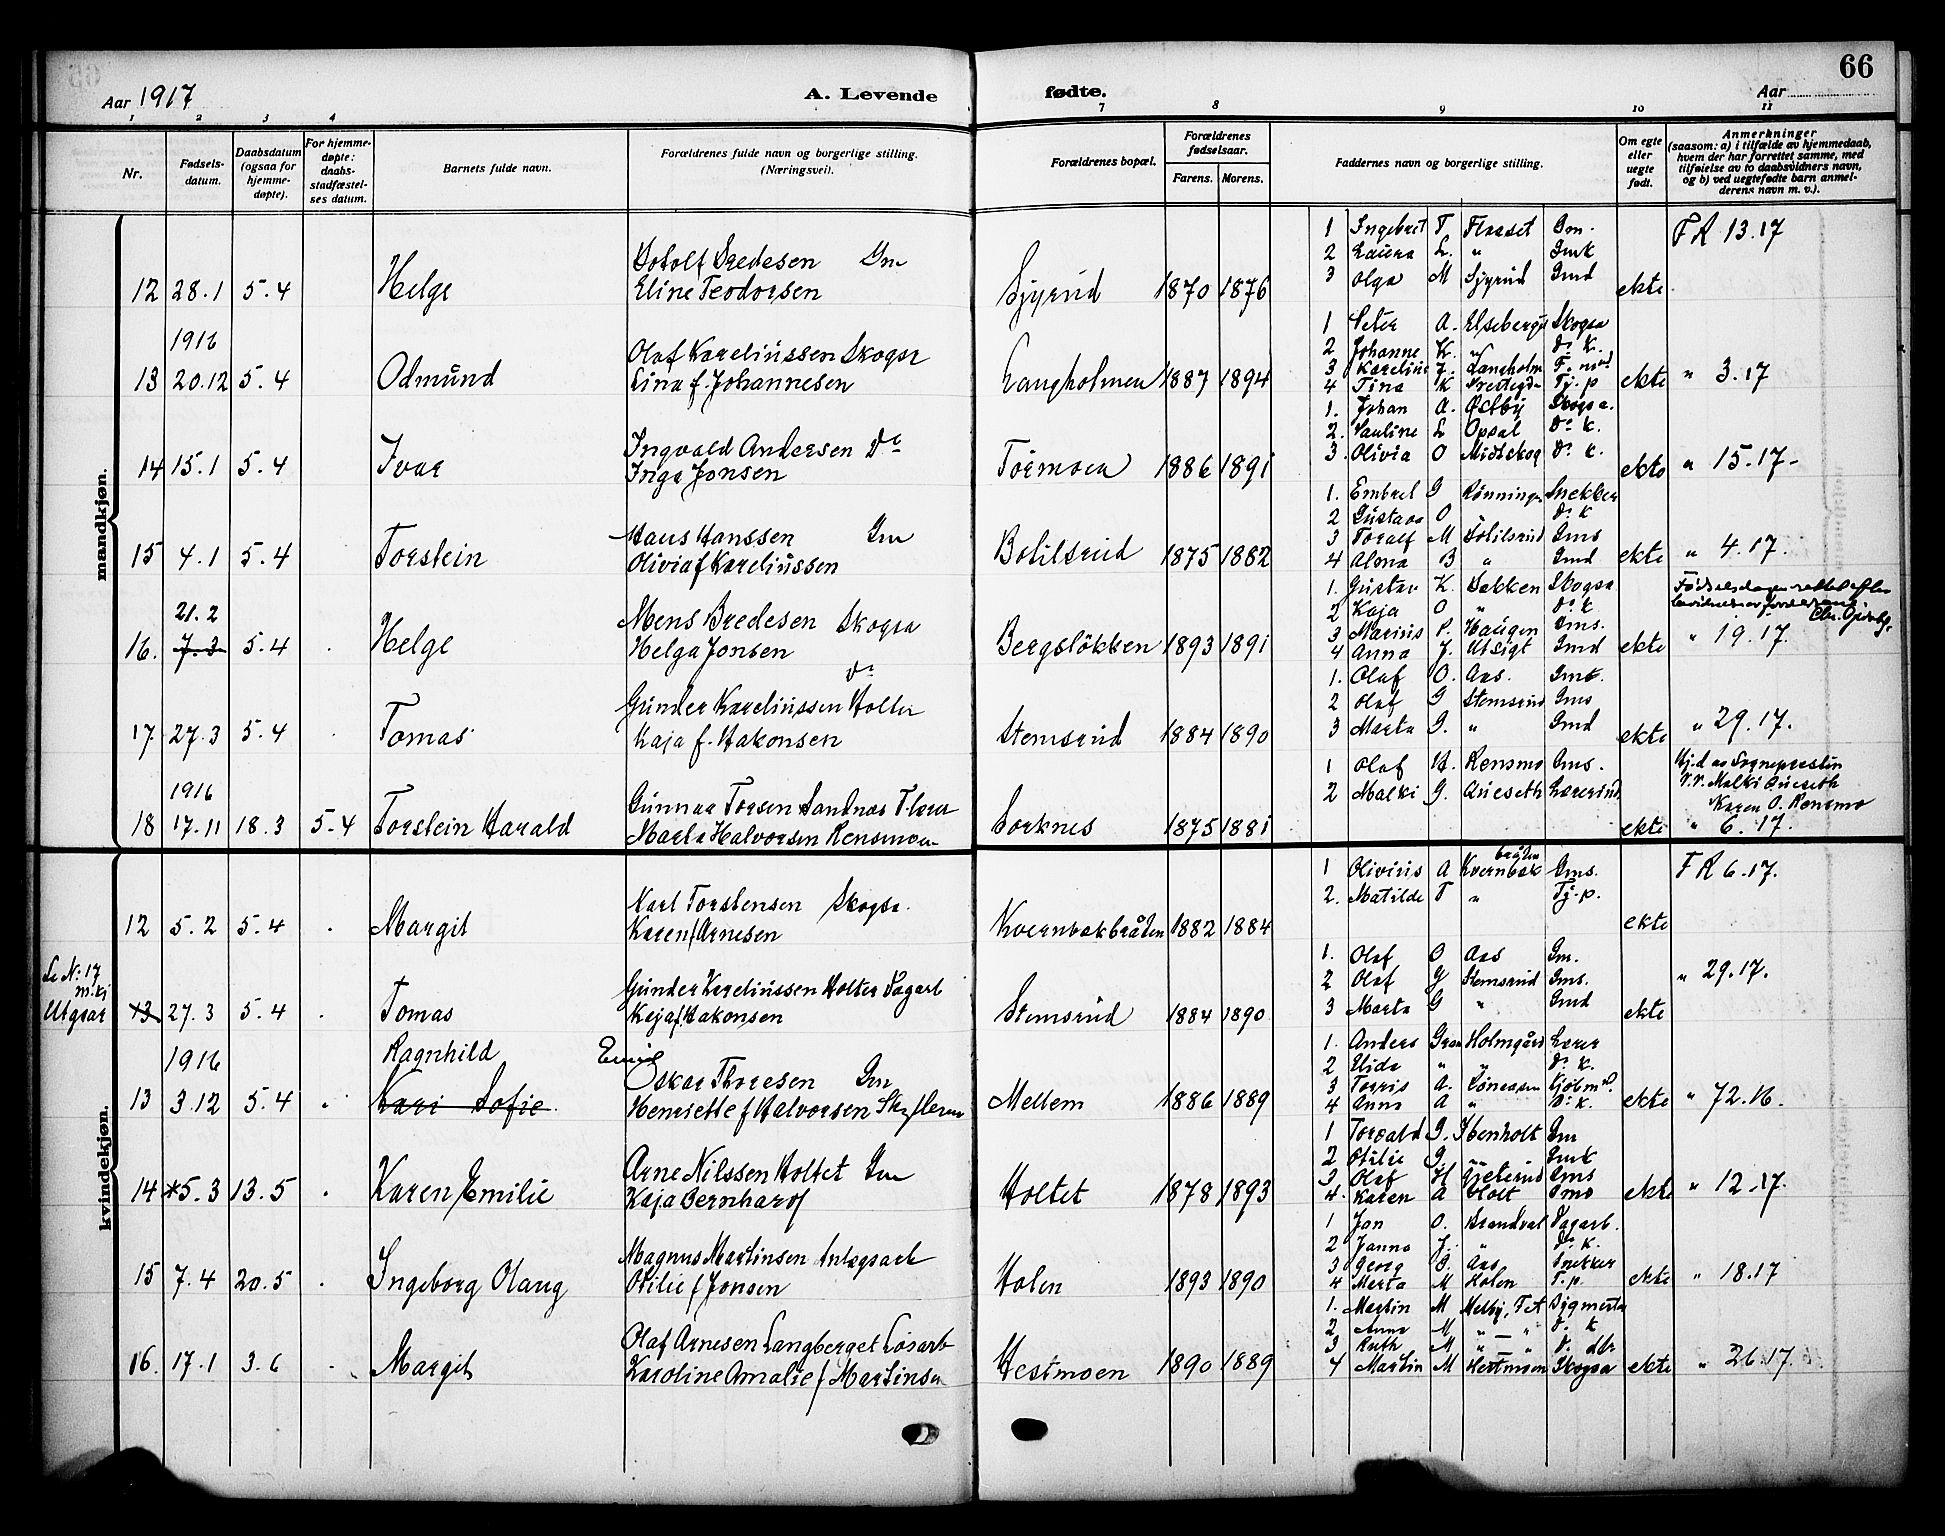 66
Aar 1917
A. Levende fødte.
Aar
1 2 3 4 7 8 9 10 11
Nr.
Fødsels-datum.
Daabsdatum (ogsaa for hjemme-døpte).
For hjemme-døpte: daabs-stadfæstel-ses datum.
Barnets fulde navn.
Forældrenes fulde navn og borgerlige stilling. (Næringsvei).
Forældrenes bopæl.
Forældrenes fødselsaar.
Farens. Morens.
Faddernes navn og borgerlige stilling.
Om egte eller uegte født.
Anmerkninger
(saasom: a) i tilfælde av hjemmedaab, hvem der har forrettet samme, med tilføielse av to daabsvidners navn, og b) ved uegtefødte barn anmel-derens navn m. v.).
mandkjøn.
1 Ingebret T Floaset Gm.
FR 13.17
2 Laura L. " Gmk
3 Olga M Sjyrud Gmd
Eline Teodorsen
12 28.1 5.4 Helge Sjyrud 1870 1876 ekte
1916
1 Peter A. Skogsa
2 Johanne K. " Do k.
Olaf Kareliussen Skogsa
Lina f. Johannesen
13 20.12 5.4 Odmund Langholmen 1887 1894 ekte " 3.17
4 Tina K
1. Johan A. Østby Skogsa.
2. Pauline L Opsal Do k.
3. Olivia O Midtskog Do k.
Ingvald Andersen Do
Inga Jonsen
14 15.1 5.4 Ivar Tørmoen 1886 1891 ekte " 15.17
1. Embret G Rønningen Snekker
2 Gustava O Do k
3 Toralf M Bolilsrud Gms
4 Alma B " Gmd
Hans Hanssen Gm
Olivia f Kareliussen
15 4.1 5.4 Torstein Bolilsrud 1875 1882 ekte " 4.17.
1. Gustav K. Bakken Skogsa
2 Kaja O " Do k
3 Marius P. Haugen Gms.
4 Anna J. Utsigt Gmd
21.2
Mens Bredesen Skogsa
Helga Jonsen
16. 7.3 5.4 Helge Bergsløkken 1893 1891 ekte " 19.17.
1. Olaf O. Aas. Gmk.
2 Olaf G Stemsrud Gms
3 Marta G. " Gmd
Do
Gunder Kareliussen Holter
Kaja f. Hakonsen
17 27.3 5.4 Tomas Stemsrud 1884 1890 ekte " 29.17.
1 Olaf H. Rensmo Gms.
2 Malki G. Quiseth Lærerind
Hj.d av Sogneprestin
V.V. Malki Quiseth
Karen O. Rensmo
1916
Gunnar Torsen Sandnas
Marta Halvorsen Rensmoen
18 17.11 18.3 5.4 Torstein Harald Sorknes 1875 1881 ekte " 6.17.
kvindekjøn.
1 Olivius A Kvernbakbråten Gms.
FR 6.17.
2. Matilde T " Tj.p.
Karl Torstensen Skogsa.
Karen f Arnesen
12 5.2 5.4 Margit Kvernbakbråten 1882 1884 ekte
Se No 17 m.kj
Utgaar
1. Olaf O Aas Gm.
2 Olaf G Stemsrud Gms.
3 Marta G " Gmd
" 29.17.
Gunder Kareliussen Holter Dagarb
Kaja f Hakonsen
13 27.3 5.4 Tomas Stemsrud 1884 1890 ekte
1916 Ragnhild Emil
1. Anders Gran Holmgård Lærer
2 Elida " " Do k.
3 Torris A. Kjøbmd
4 Anna A " Do k.
Oskar Thoresen Gm
Henriette f Halvorsen
13 3.12 5.4 Kari Sofie Mellem 1886 1889 ekte " 72.16.
1 Torvald G. Ibenholt Gm
2 Otilie G " Gmk
3 Olaf H Gms
4. Karen A Holt Gmd
Arne Nilssen Holtet Gm
Kaja Bernhard f
14 5.3 13.5 Karen Emilie Holtet 1878 1893 ekte " 12.17.
1 Jon O. Brandval Dagarb.
2 Janna J. " Do k.
3 Georg O. Aas Snekker
4 Marta M Holen T.p.
Magnus Martinsen Anlegsarb
Otilie f Jonsen
15 7.4 20.5 Ingeborg Olaug Holen 1893 1890 ekte " 18.17
1. Martin M Melby, Tet
2 Anna M " " D. k
3 Ruth M " " D. dtr
4 Martin M Hestmoen Skogsa
Olaf Arnesen Langberget Løsarb
Karoline Amalie f Martinsen
16. 17.1 3.6 Margit Hestmoen 1890 1889 ekte " 26.17.